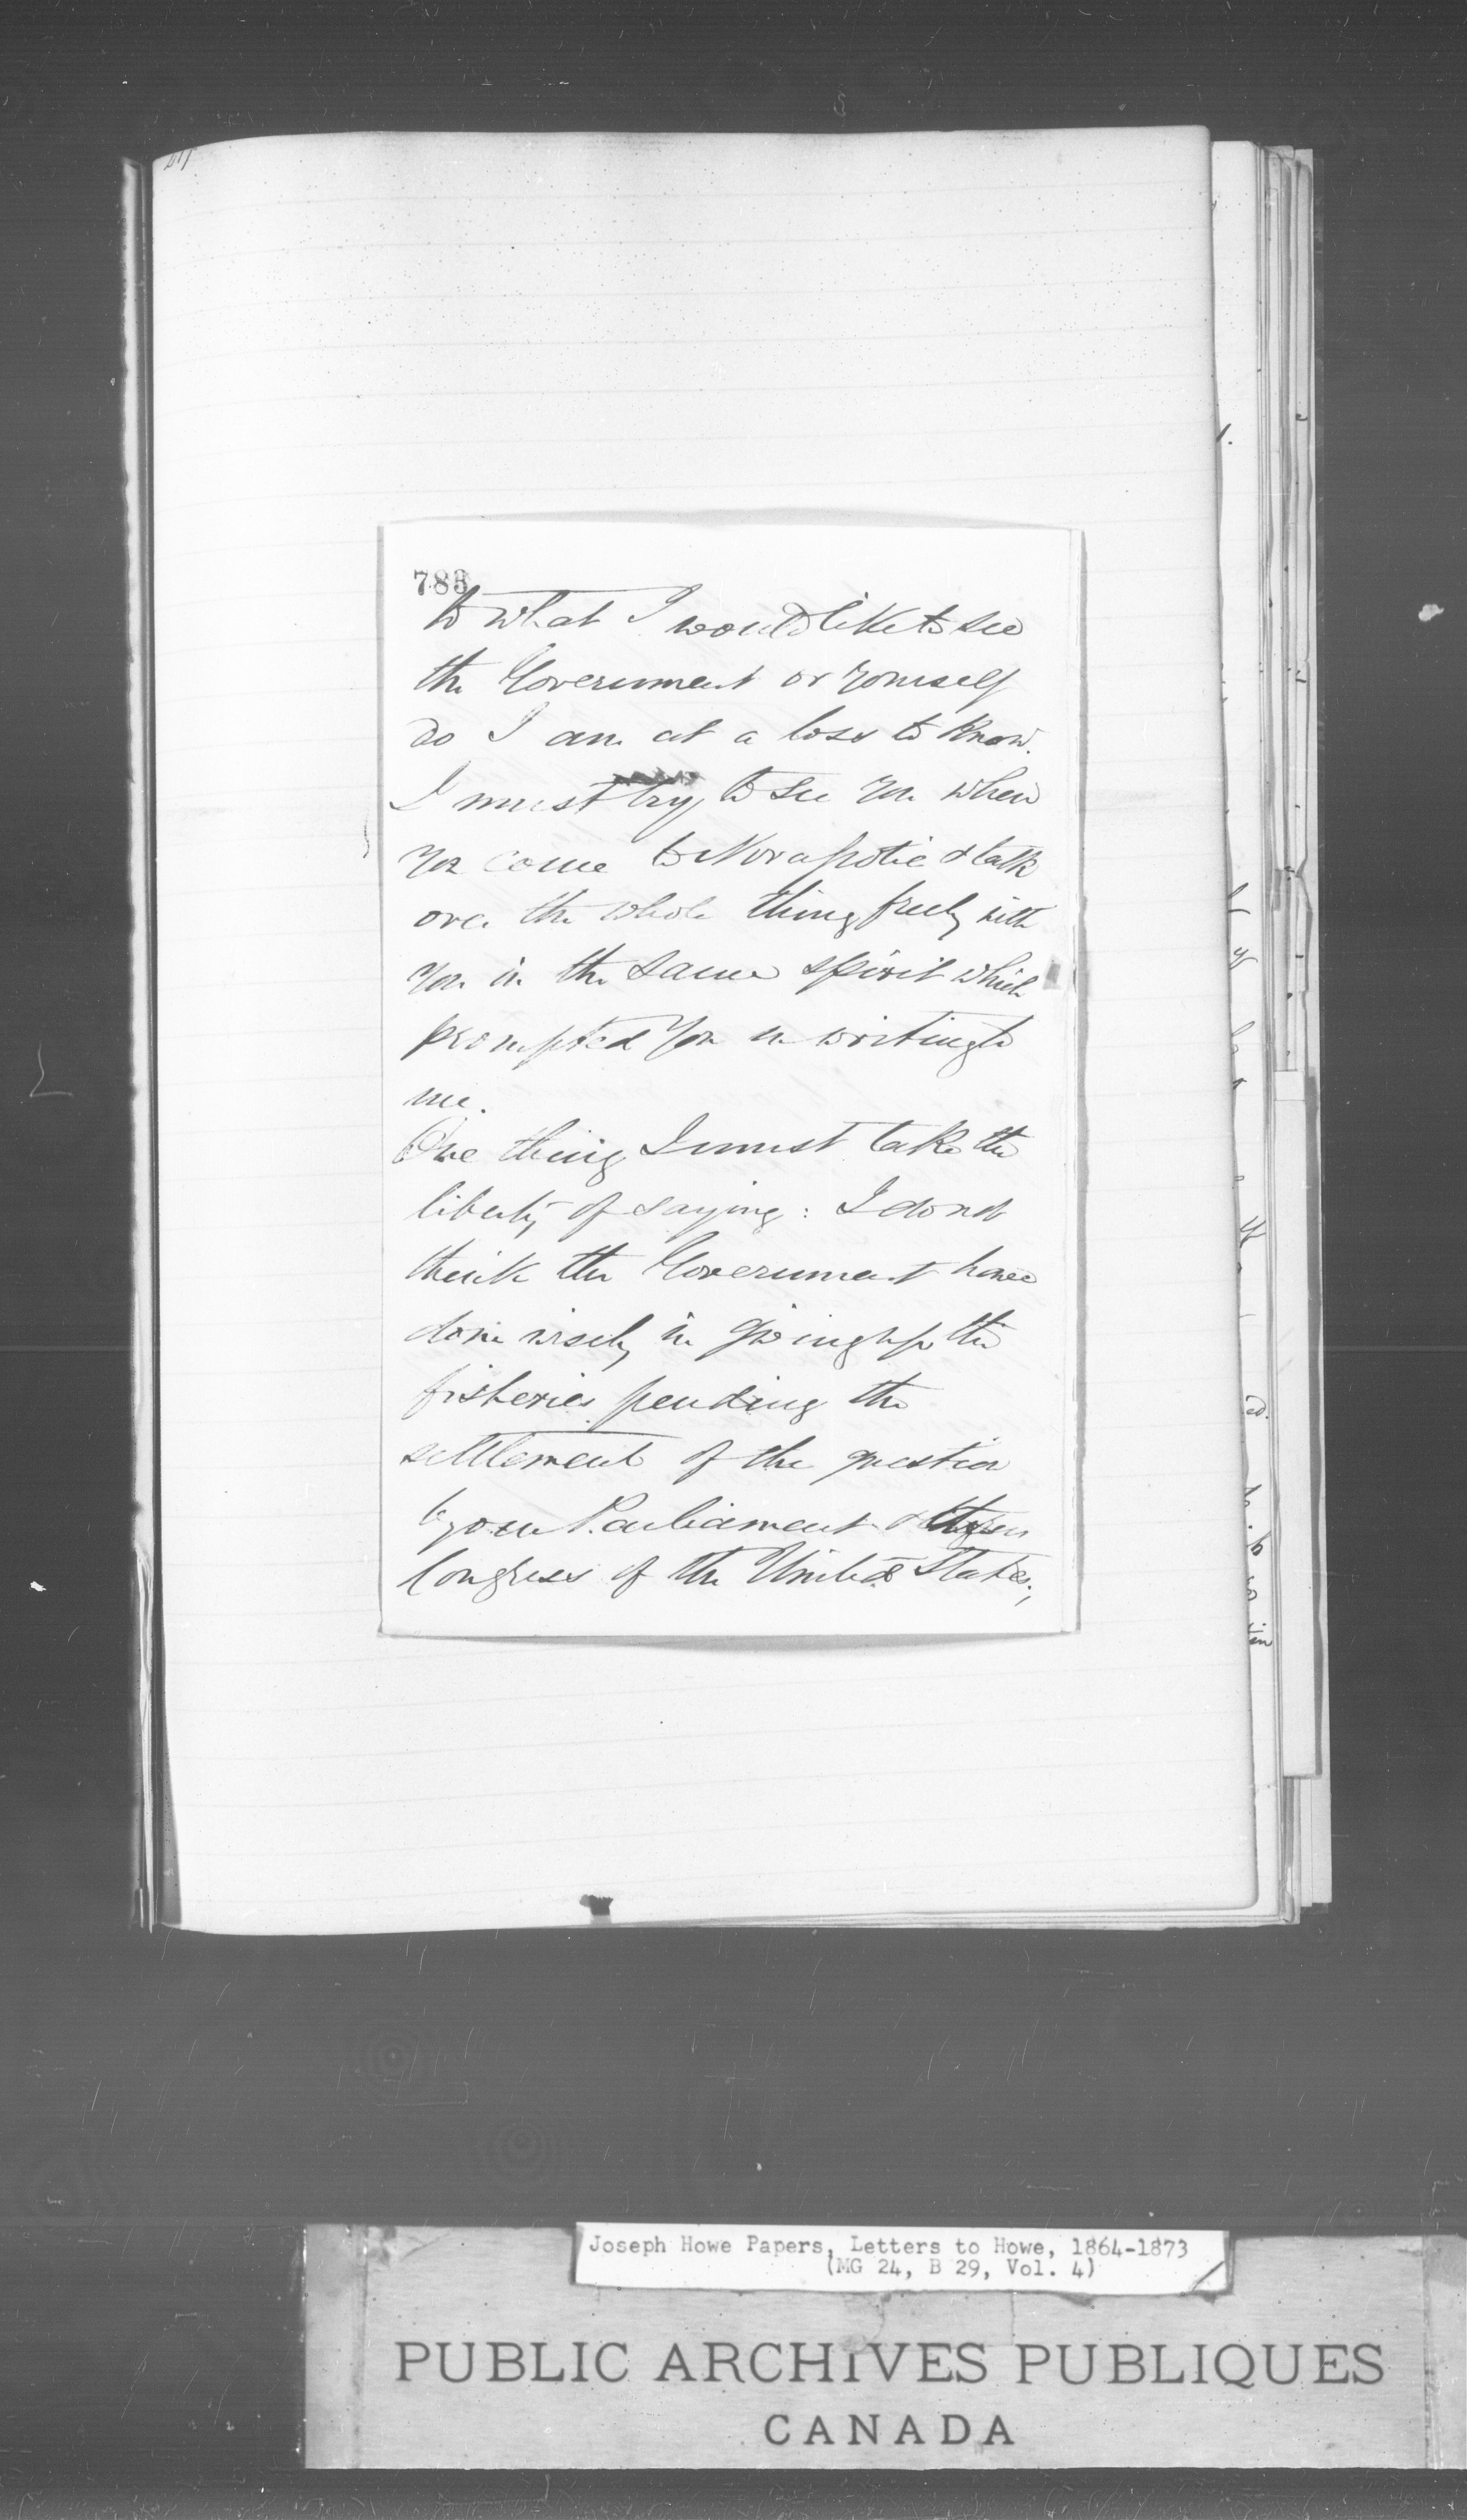 783
to what I would like to see
the Government or yourself
do I am at a loss to know.
I must try to see you when
you come to Nova Scotia & talk
over the whole thing freely with
you in the same spirit which
prompted you in writing to
me.
One thing I must take the
liberty of saying: I do not
think the Government have
done wisely in giving up the
fisheries pending the
settlement of the question
by our Parliament &
Congress of the United States;
Joseph Howe Papers, Letters to Howe, 1864-1873
(MG 24, B 29, Vol. 4)
PUBLIC ARCHIVES PUBLIQUES
CANADA